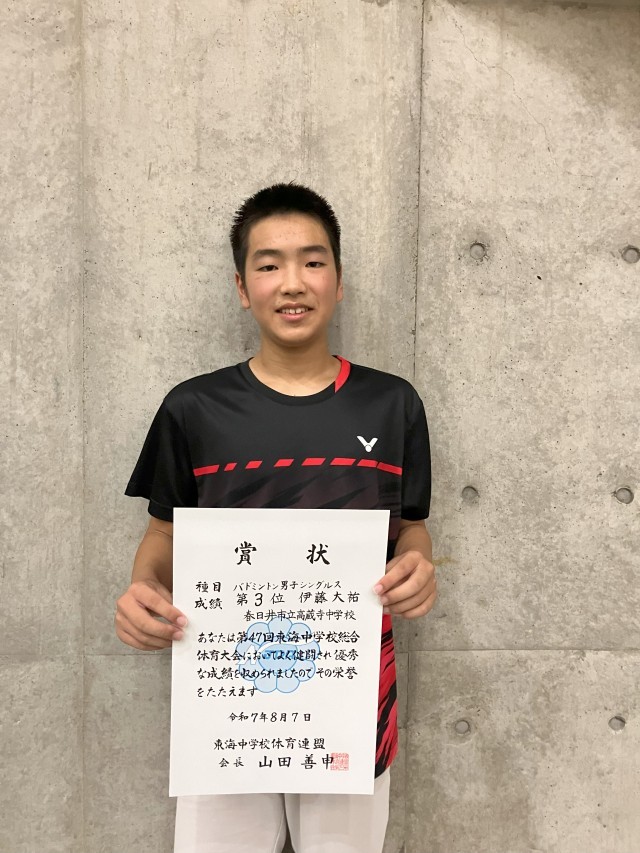 賞 状
種目 バドミントン男子シングルス
成績 第3位 伊藤大祐
春日井市立高蔵寺中学校
あなたは第47回東海中学校総合
体育大会においてよく健闘され優秀
な成績を収められましたのでその栄誉
をたたえます
令和7年8月7日
東海中学校体育連盟
会長 山田善申